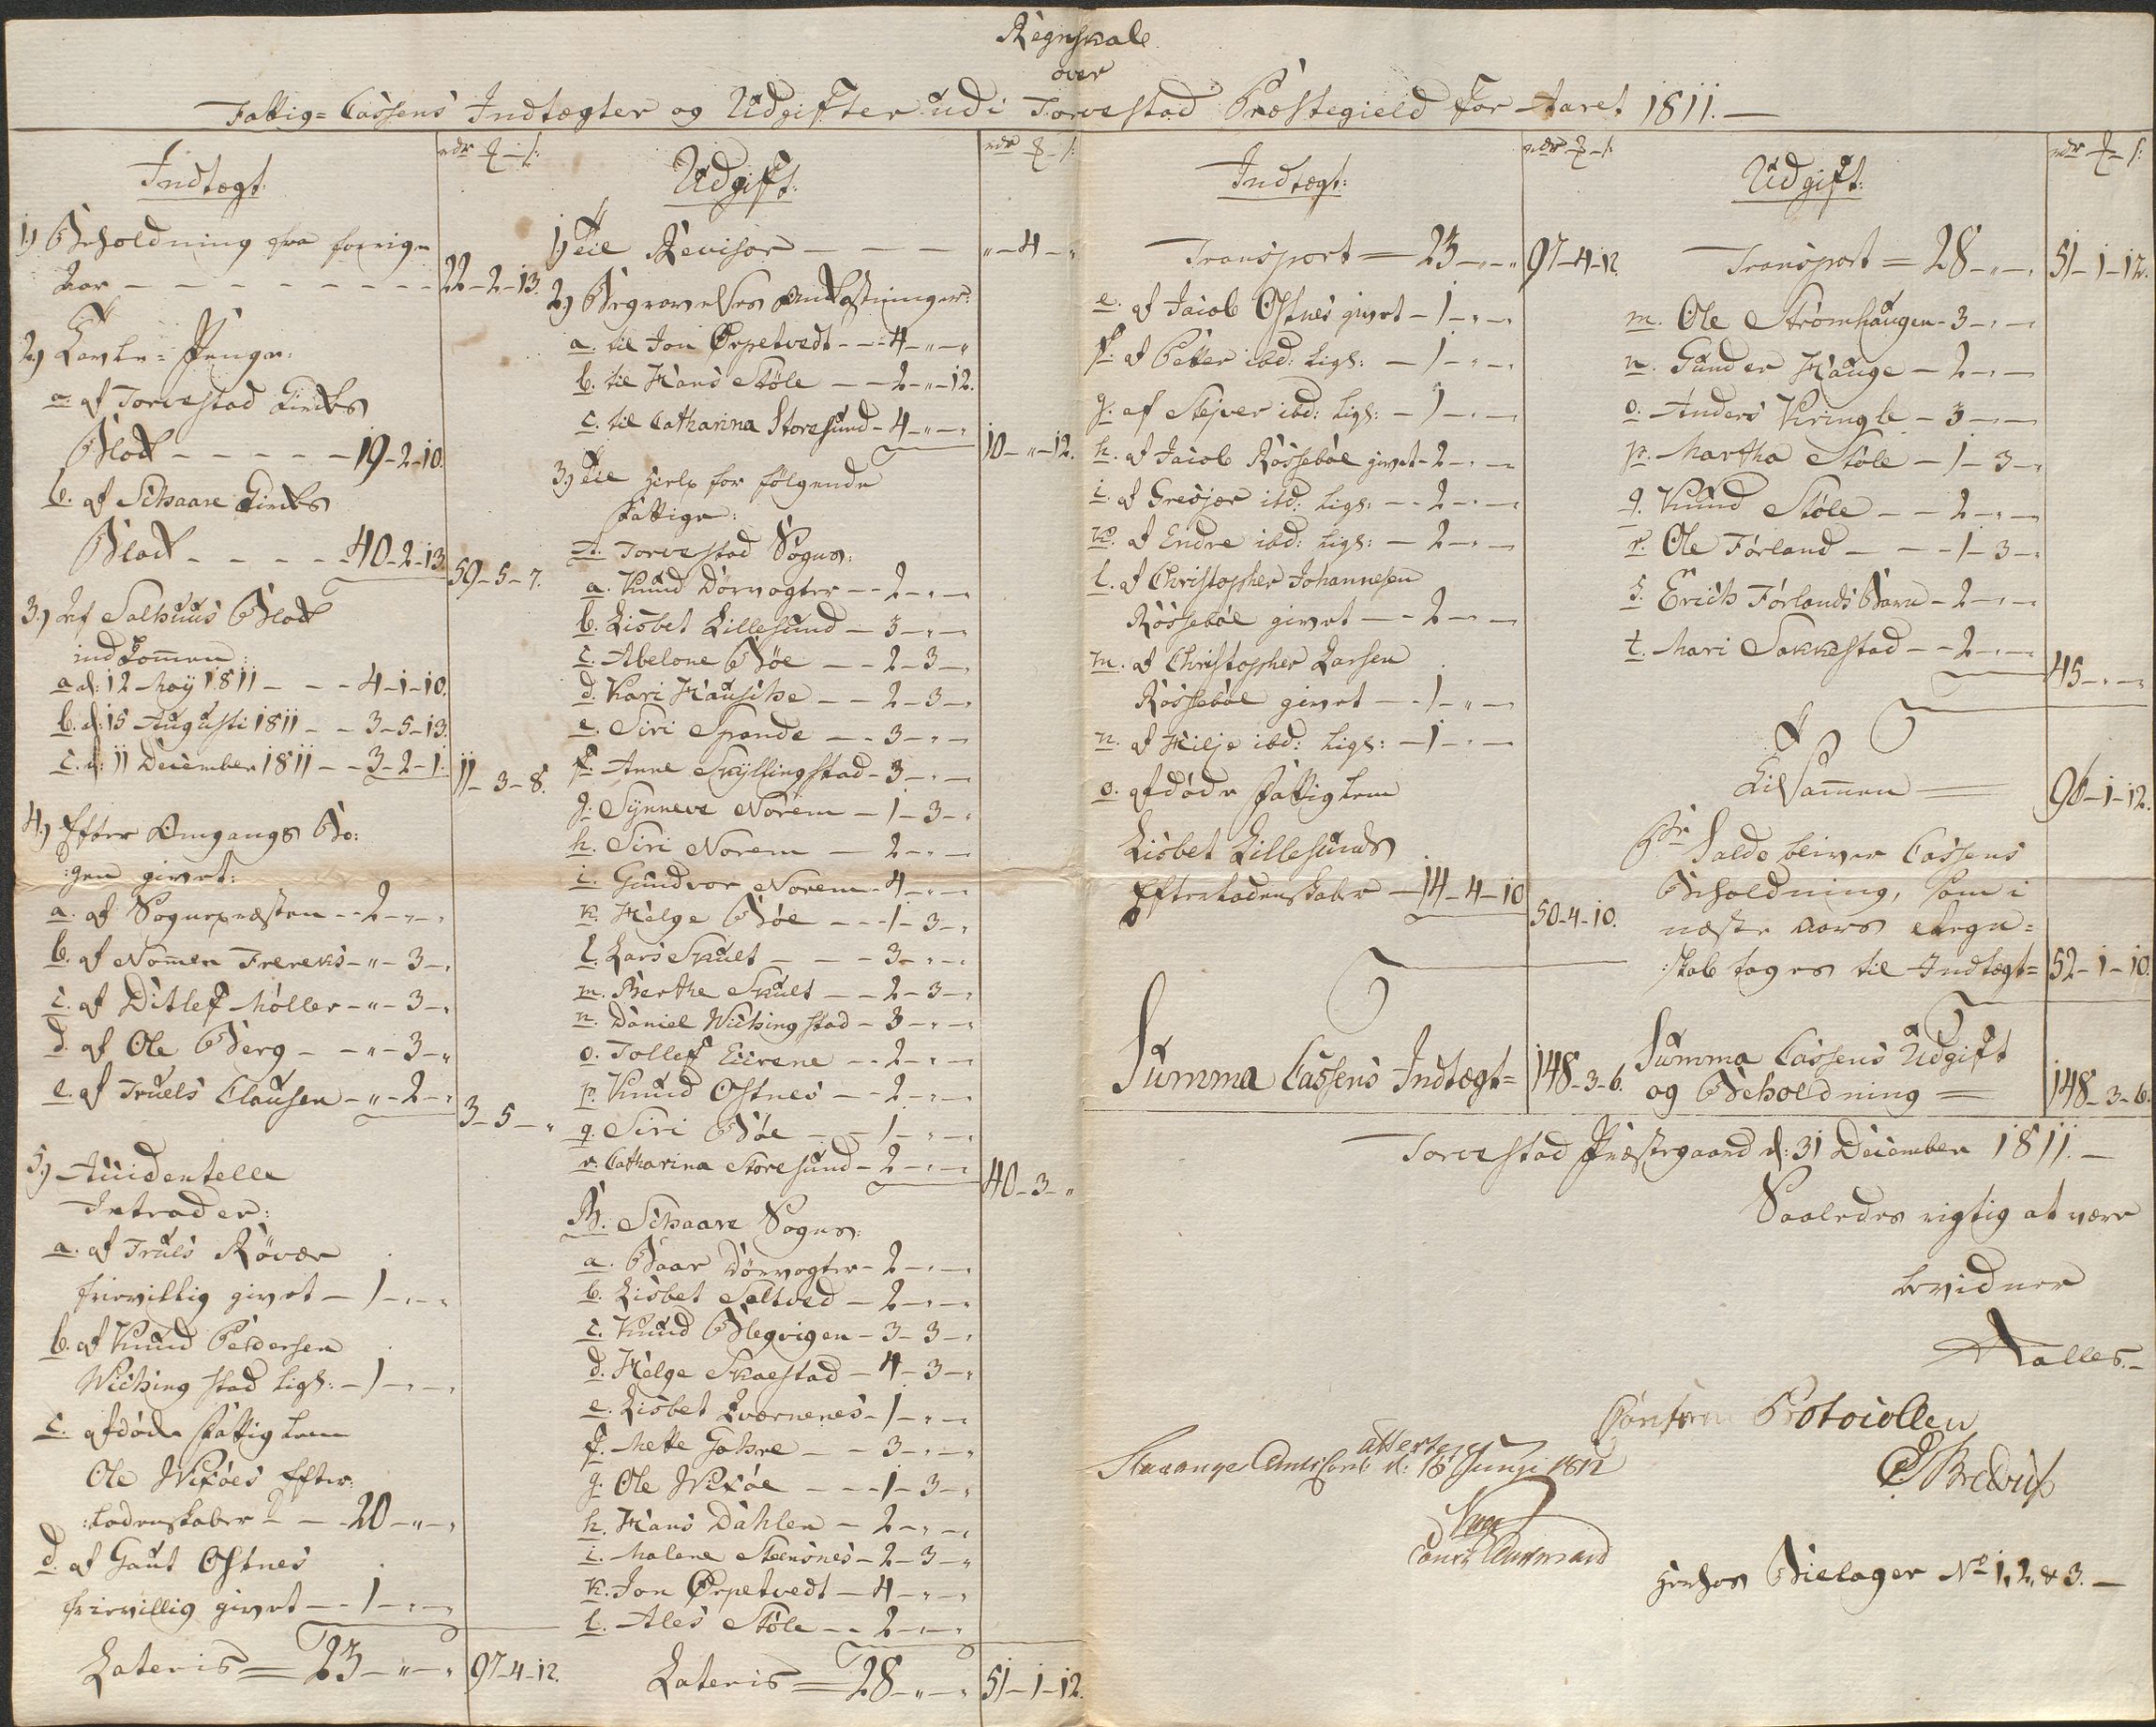 Regnskab
over
Fattig=Cassens Indtægter og Udgifter udi Torvestad Præstegield for Aaret 1811.—
Indtægt:
rdr ꝣ - s:
1.) Beholdning fra forrige
Aar - - - - - - - - 22-2-13.
2.) Tavle=Penge:
a. af Torvestad Kirkes
Blok - - - - - 19-2-10.
b. af Schaare Kirkes
Blok - - - - - 40-2-13.
59-5-7.
3.) Af Salhuus Blok
indkommen:
a. d: 12 May 1811 - - - 4-1-10.
b. d: 15 Augusti 1811 - - 3-5-13.
c. d: 11 December 1811 - - 3-2-1.
11-3-8.
4.) Efter Omgangs Bo:
:gen givet:
a. af Sognepræsten - - 2-"-"
b. af Nomen Frereks - " - 3-"
c. af Ditlef Møller - " - 3-"
d. af Ole Berg - - " - 3-"
e. af Truels Clausen - " - 2-"
3-5-"
5.) Accidentelle
Intrader:
a. af Truls Röver
frievillig givet - 1-"-"
b. af Knud Peddersen
Wichingstad ligs: - 1-"-"
c. afdøde Fattiglem
Ole Wixöes Efter:
:ladenskaber - - 20-"-"
d. af Gaut Ostnes
frievillig givet - - 1-"-"
Lateris = 23-"-" 97-4-12.
Udgift:
rdr ꝣ - s:
1.) Til Revisor - - - "-4-"
2.) Begravelses Omkostninger:
a. til Jon Ørpetvedt - - 4-"-"
b. til Hans Stöle - - 2-"-12.
c. til Catharina Storesund - 4-"-"
10-"-12.
3.) Til Hielp for følgende
Fattige:
A. Torvestad Sogn:
a. Knud Dørvogter - - 2-"-"
b. Lisbet Lillesund - 3-"-"
c. Abelone Böe - - 2-3-"
d. Kari Hauske - - 2-3-"
e. Siri Spande - - 3-"-"
f. Anne Skyllingstad - 3-"-"
g. Synneve Norem - 1-3-"
h. Siri Norem - 2-"-"
i. Gundvor Norem - 4-"-"
k. Helge Böe - - - 1-3-"
l. Lars Skult - - - 3-"-"
m. Berthe Skult - - 2-3-"
n. Daniel Wichingstad - 3-"-"
o. Tollef Eicrene - - 2-"-"
p. Knud Ostnes - - 2-"-"
q. Siri Böe - - 1-"-"
r. Catharina Storesund - 2-"-"
40-3-"
B. Schaare Sogn:
a. Baar Dørvogter - 2-"-"
b. Lisbet Saltved - 2-"-"
c. Knud Blegvigen - 3-3-"
d. Helge Skaestad - 4-3-"
e. Lisbet Qværnenes - 1-"-"
f. Mette Gahre - - 3-"-"
g. Ole Wixöe - - - 1-3-"
h. Hans Dahlen - 2-"-"
i. Malene Steensnes - 2-3-"
k. Jon Ørpetvedt - 4-"-"
l. Ales Stöle - - 2-"-"
Lateris = 28-"-" 51-1-12.
Indtægt:
rdr ꝣ - s:
Transport = 23-"-" 97-4-12.
e. af Jacob Ostnes givet - 1-"-"
f. af Petter ibd: ligs: - 1-"-"
g. af Stejver ibd: ligs: - 1-"-"
h. af Jacob Rosseböe givet - 2-"-"
i. af Gresjer ibd: ligs: - - 2-"-"
k. af Endre ibd: ligs: - 2-"-"
l. af Christopher Johannesen
Rössebøe givet - - 2-"-"
m. af Christopher Larsen
Rossebøe givet - - 1-"-"
n. af Hilje ibd: ligs: - 1-"-"
o. afdøde Fattiglem
Lisbet Lillesunds
Efterladenskaber - 14-4-10
50-4-10.
Summa Cassens Indtægt = 148-3-6.
Udgift:
rdr ꝣ - s:
Transport = 28-"-" 51-1-12.
m. Ole Strömhaugen - 3-"-"
n. Gunder Hauge - 2-"-"
o. Anders Kringle - 3-"-"
p. Martha Stöle - 1-3-"
q. Knud Stöle - - 2-"-"
r. Ole Forland - - - 1-3-"
s. Erich Førlands Barn - 2-"-"
t. Mari Sakkestad - - 2-"-"
45-"-"
Tilsammen = 96-1-12.
Per Saldo bliver Cassens
Beholdning, som i
næste Aars Regn=
:skab tages til Indtægt = 52-1-10.
Summa Cassens Udgift
og Beholdning = 148-3-6.
Torvestad Præstegaard d: 31 December 1811.—
Saaledes rigtig at være
bevidner
Aalles.-
Conform Protocollen
attesterer
Stavanger Amtscont. d: 18 Junji 1812
const. Amtmand
Herhos Bielager No 1, 2, & 3.—